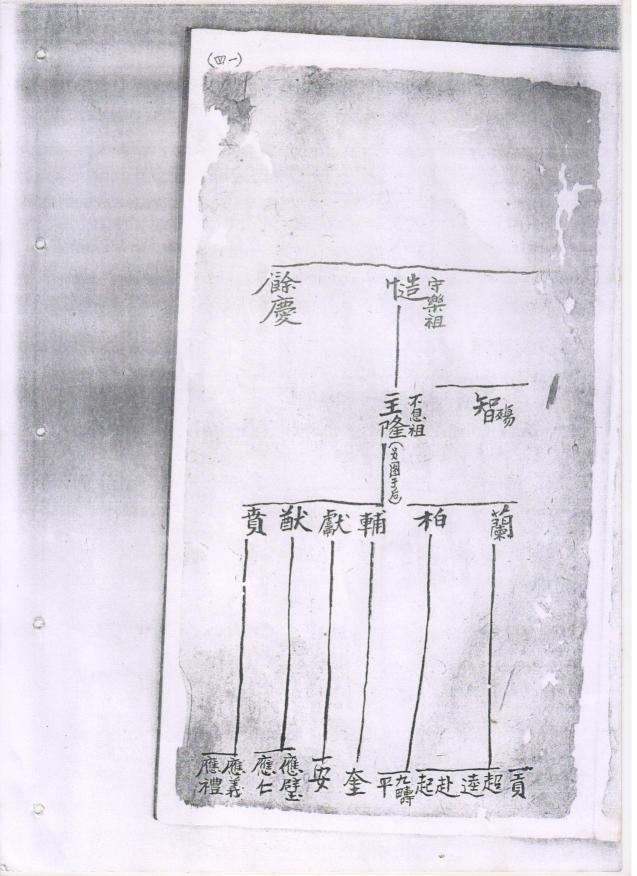 (四一)
守樂祖
慥
餘慶
智殤
不息祖
主隆(另圖于后)
蘭
柏
輔
獻
猷
賁
貢
超
逵
赴
起
九疇
平
奎
安
應璧
應仁
應義
應禮